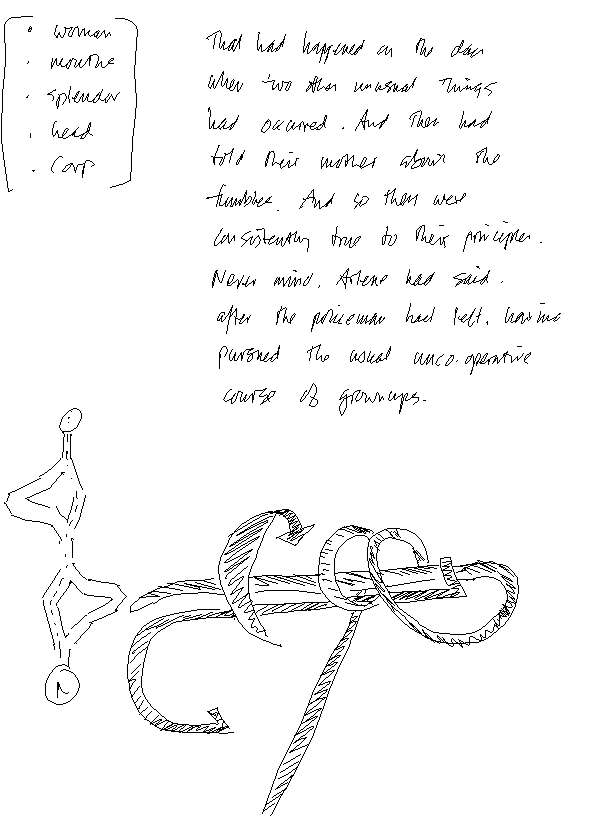 woman
mouthe
splendor
head
Carp
That had happened on the day
when two other unusual things
had occurred. And they had
told their mother about the
And so they were
consistently true to their principles.
Never mind, Arlene had said.
after the policeman had left, having
pursued the usual unco-operative
course of grownups.